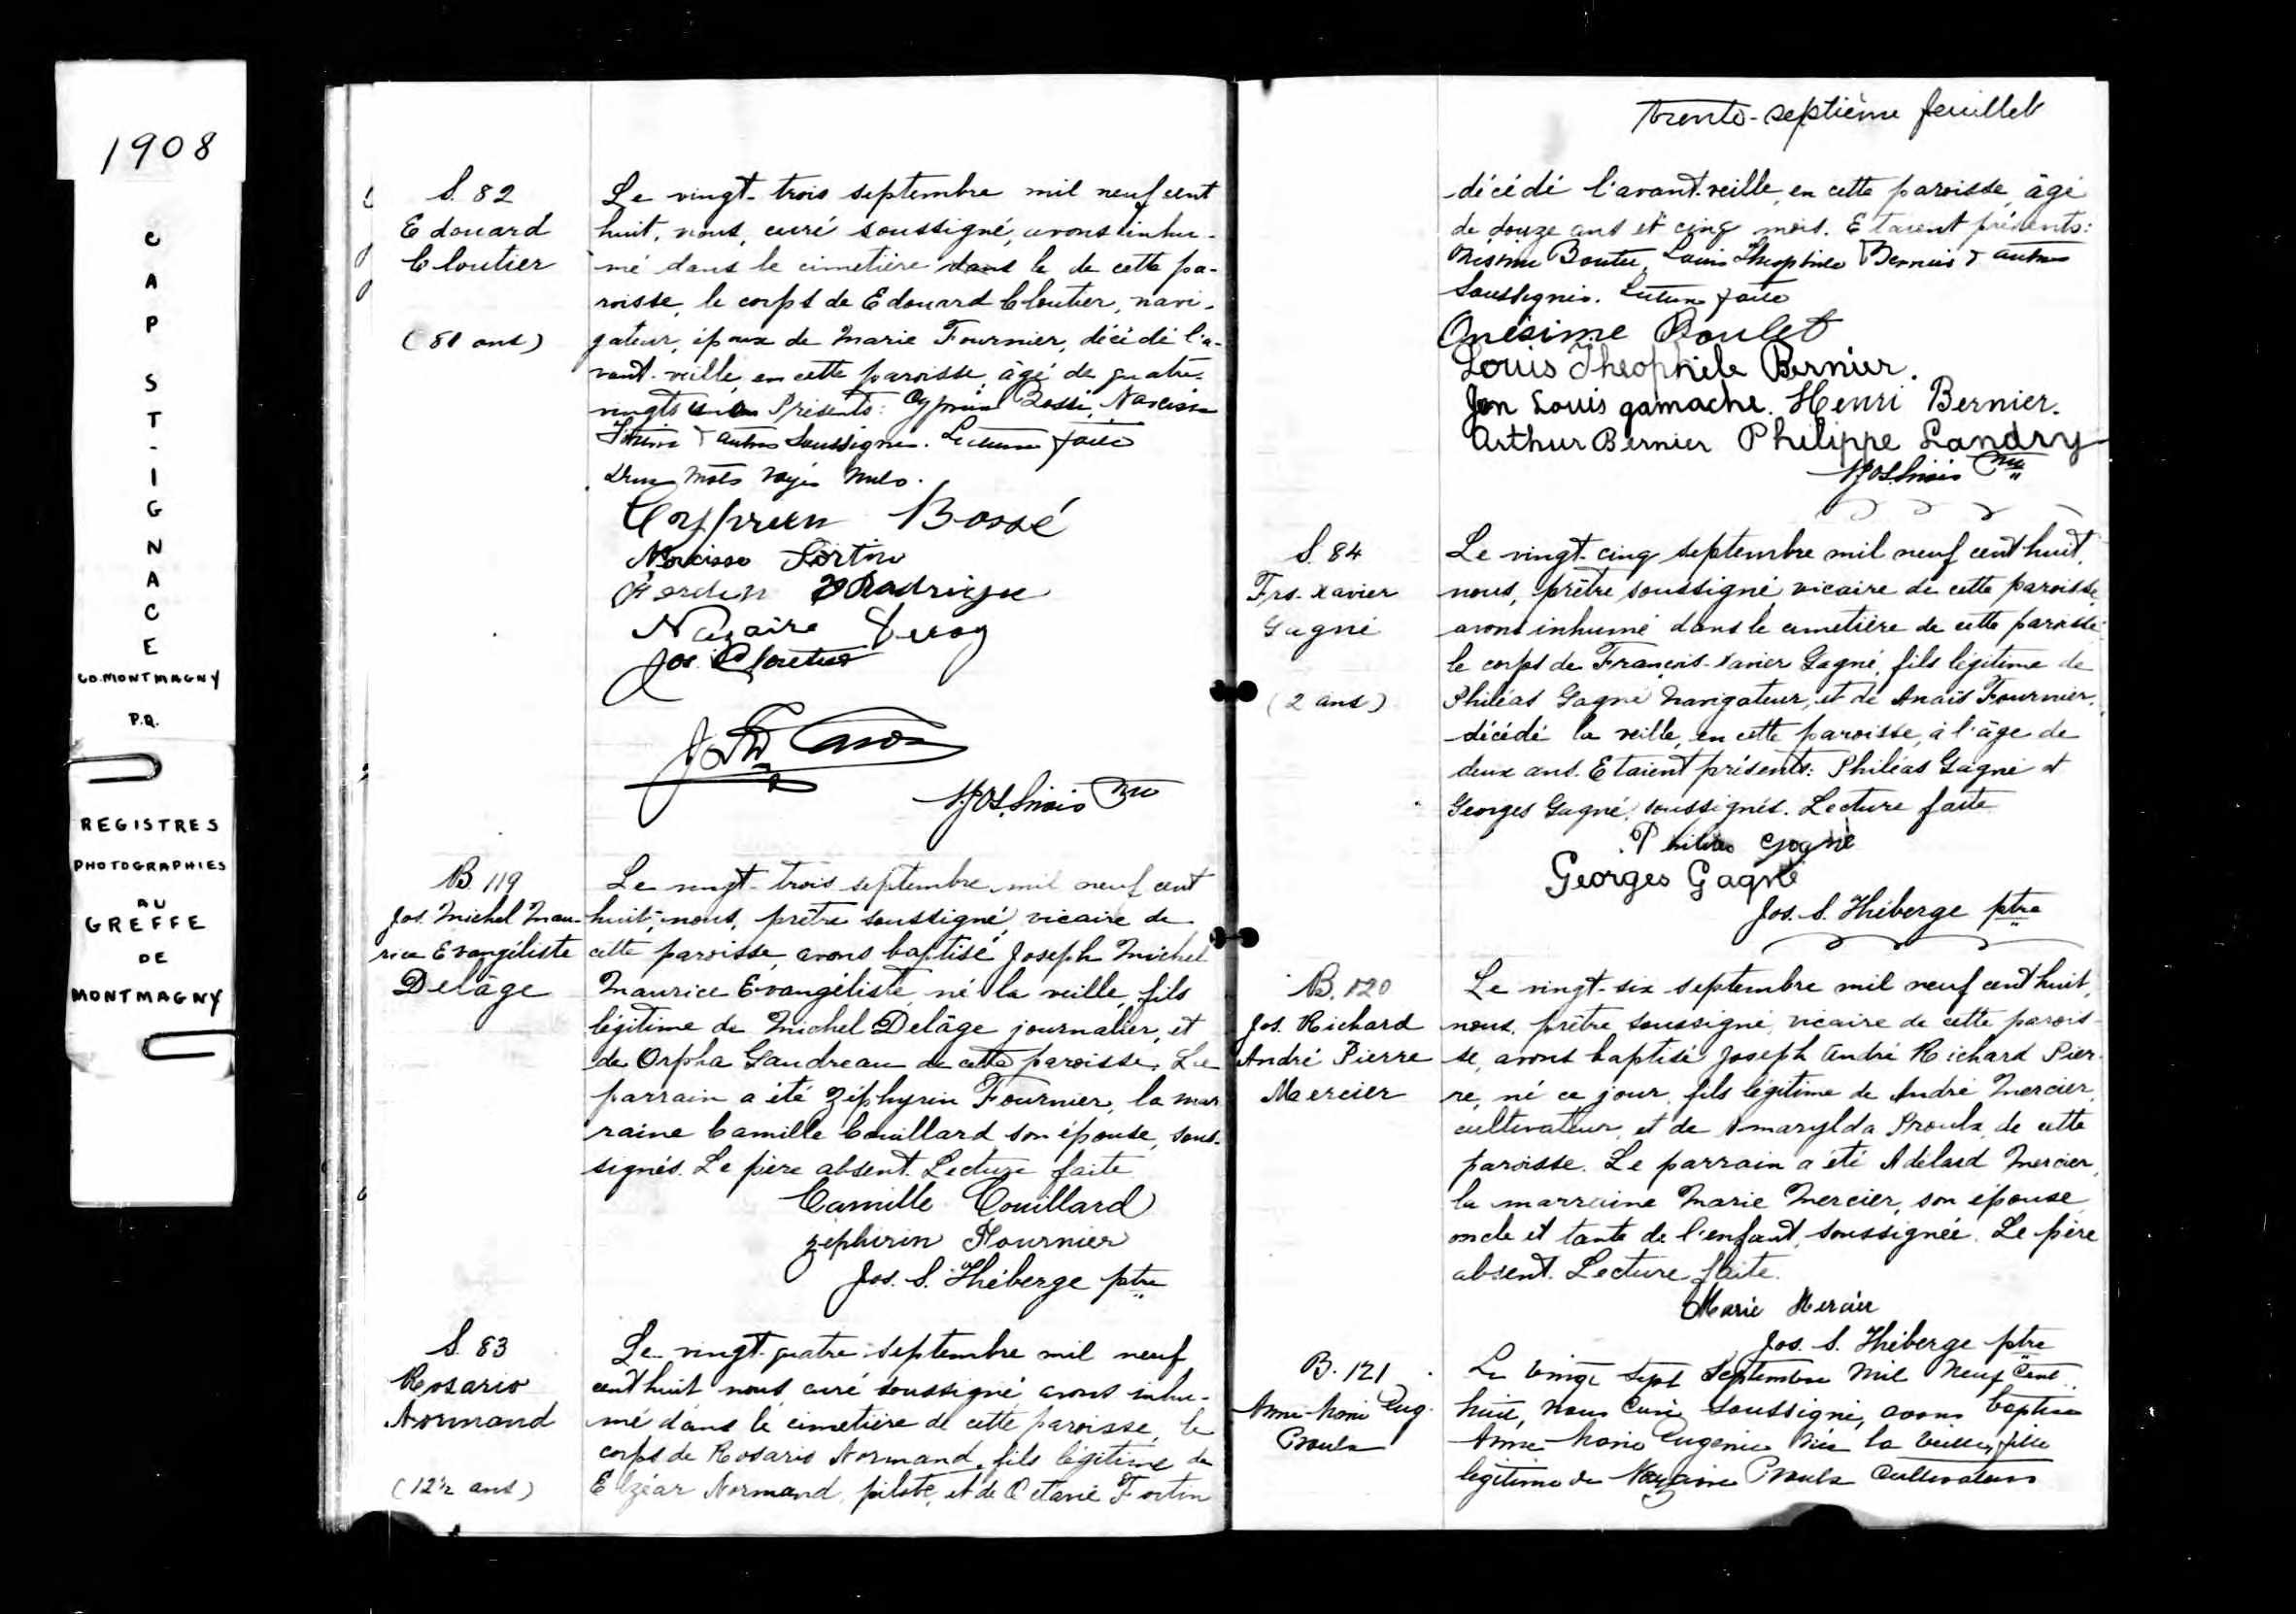 1908
CAP ST-IGNACE
CO. MONTMAGNY
P.Q.
REGISTRES
PHOTOGRAPHIES
AU
GREFFE
DE
MONTMAGNY
S. 82
Edouard
Cloutier
(81 ans)
Le vingt-trois septembre mil neuf cent
huit, nous, curé soussigné, avons inhu-
mé dans le cimetière dans le de cette pa-
roisse, le corps de Edouard Cloutier, navi-
gateur, époux de Marie Fournier, décédé l'a-
vant-veille, en cette paroisse, âgé de quatre-
vingts Présents: Cyprien Bossé, Narcisse
Fortin & autres Soussignés. Lecture faite
Deux mots rayés nuls.
Cyprien Bossé
Narcisse Fortin
Rodrigue
Nazaire
Jos. Cloutier
Caron
B. 119
Jos. Michel Mau-
rice Evangéliste
Delâge
Le vingt-trois septembre mil neuf cent
huit, nous, prêtre soussigné, vicaire de
cette paroisse, avons baptisé Joseph Michel
Maurice Evangéliste, né la veille, fils
légitime de Michel Delâge journalier, et
de Orpha Gaudreau de cette paroisse. Le
parrain a été Zéphyrin Fournier, la mar
raine Camille Couillard son épouse, sous-
signés. Le père absent. Lecture faite
Camille Couillard
zephirin Fournier
Jos. S. Théberge ptre
S. 83
Rosario
Normand
(12½ ans)
Le vingt-quatre septembre mil neuf
cent huit nous, curé soussigné avons inhu-
mé dans le cimetière de cette paroisse, le
corps de Rosario Normand, fils légitime de
Elzéar Normand, pilote, et de Octavie Fortin
trente-septième feuillet
décédé l'avant-veille, en cette paroisse, âgé
de douze ans et cinq mois. Etaient présents:
Onésime Boulet, Louis Théophile Bernier & autres
Soussignés. Lecture faite
Onésime Boulet
Louis Théophile Bernier.
Jon Louis gamache. Henri Bernier.
Arthur Bernier Philippe Landry
S. 84
Frs-Xavier
Gagné
(2 ans)
Le vingt-cinq septembre mil neuf cent huit,
nous, prêtre soussigné vicaire de cette paroisse,
avons inhumé dans le cimetière de cette paroisse
le corps de François-Xavier Gagné, fils légitime de
Philéas Gagné Navigateur, et de Anaïs Fournier,
décédé la veille, en cette paroisse, à l'âge de
deux ans. Etaient présents: Philéas Gagné et
Georges Gagné, soussignés. Lecture faite
Philéas Gagné
Georges Gagné
Jos. S. Théberge ptre
B. 120
Jos. Richard
André Pierre
Mercier
Le vingt-six septembre mil neuf cent huit,
nous, prêtre soussigné, vicaire de cette parois-
se, avons baptisé Joseph André Richard Pier-
re, né ce jour, fils légitime de André Mercier,
cultivateur, et de Amarylda Proulx, de cette
paroisse. Le parrain a été Adélard Mercier,
la marraine Marie Mercier, son épouse,
oncle et tante de l'enfant, soussignée. Le père
absent. Lecture faite.
Marie Mercier
Jos. S. Théberge ptre
B. 121
Anne-Marie Eug.
Proulx
Le vingt sept Septembre mil neuf cent
huit, nous curé soussigné, avons baptisé
Anne-Marie Eugénie née la veille, fille
légitime de Nazaire Proulx Cultivateur